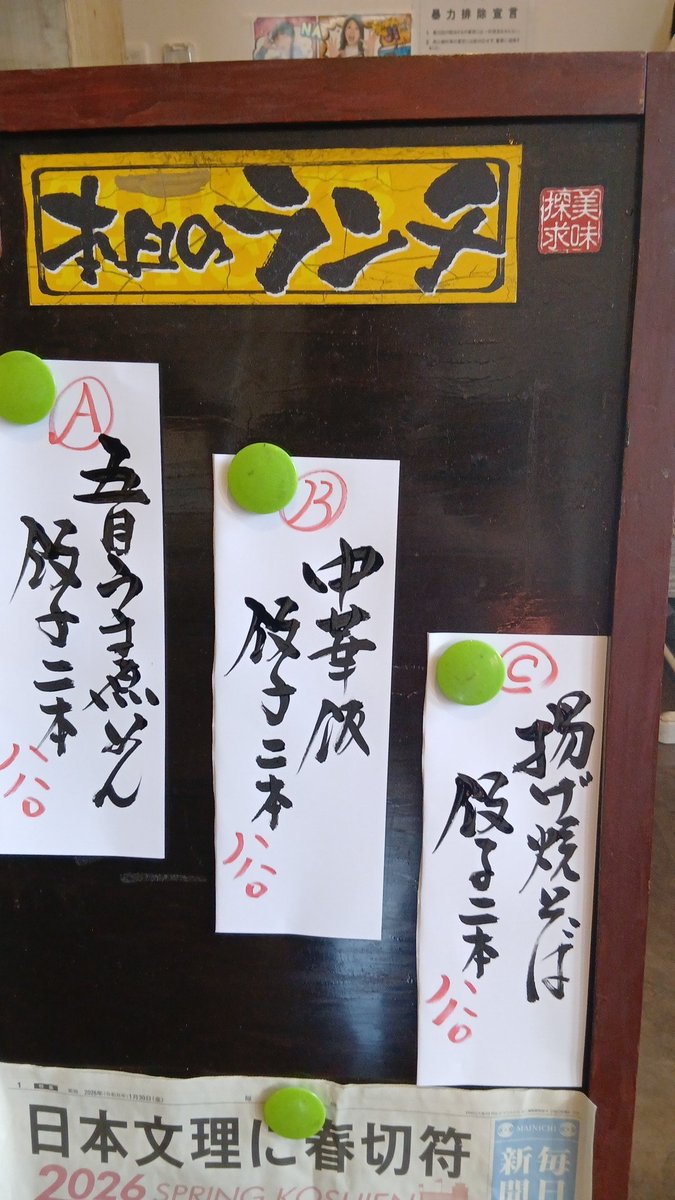 暴力排除宣言
本日のランチ
美味
探求
A
五目うま煮めん
餃子二本
B
中華飯
餃子二本
C
揚げ焼そば
餃子二本
日本文理に春切符
MAINICHI
毎日
新聞
2026 SPRING KOSHIEN